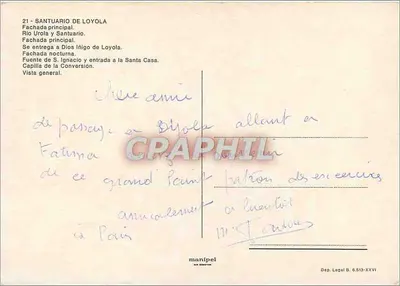 21 - SANTUARIO DE LOYOLA
Fachada principal.
Río Urola y Santuario.
Fachada principal.
Se entrega a Dios Iñigo de Loyola.
Fachada nocturna.
Fuente de S. Ignacio y entrada a la Santa Casa.
Capilla de la Conversión.
Vista general.
Chère amie
de passage a Loyola allant en
Fatima
CPARPHIL
de ce grand Saint patron des exercices
amicalement
à Paris
a bientôt
manipel
Dep. Legal B. 6.513-XXVI